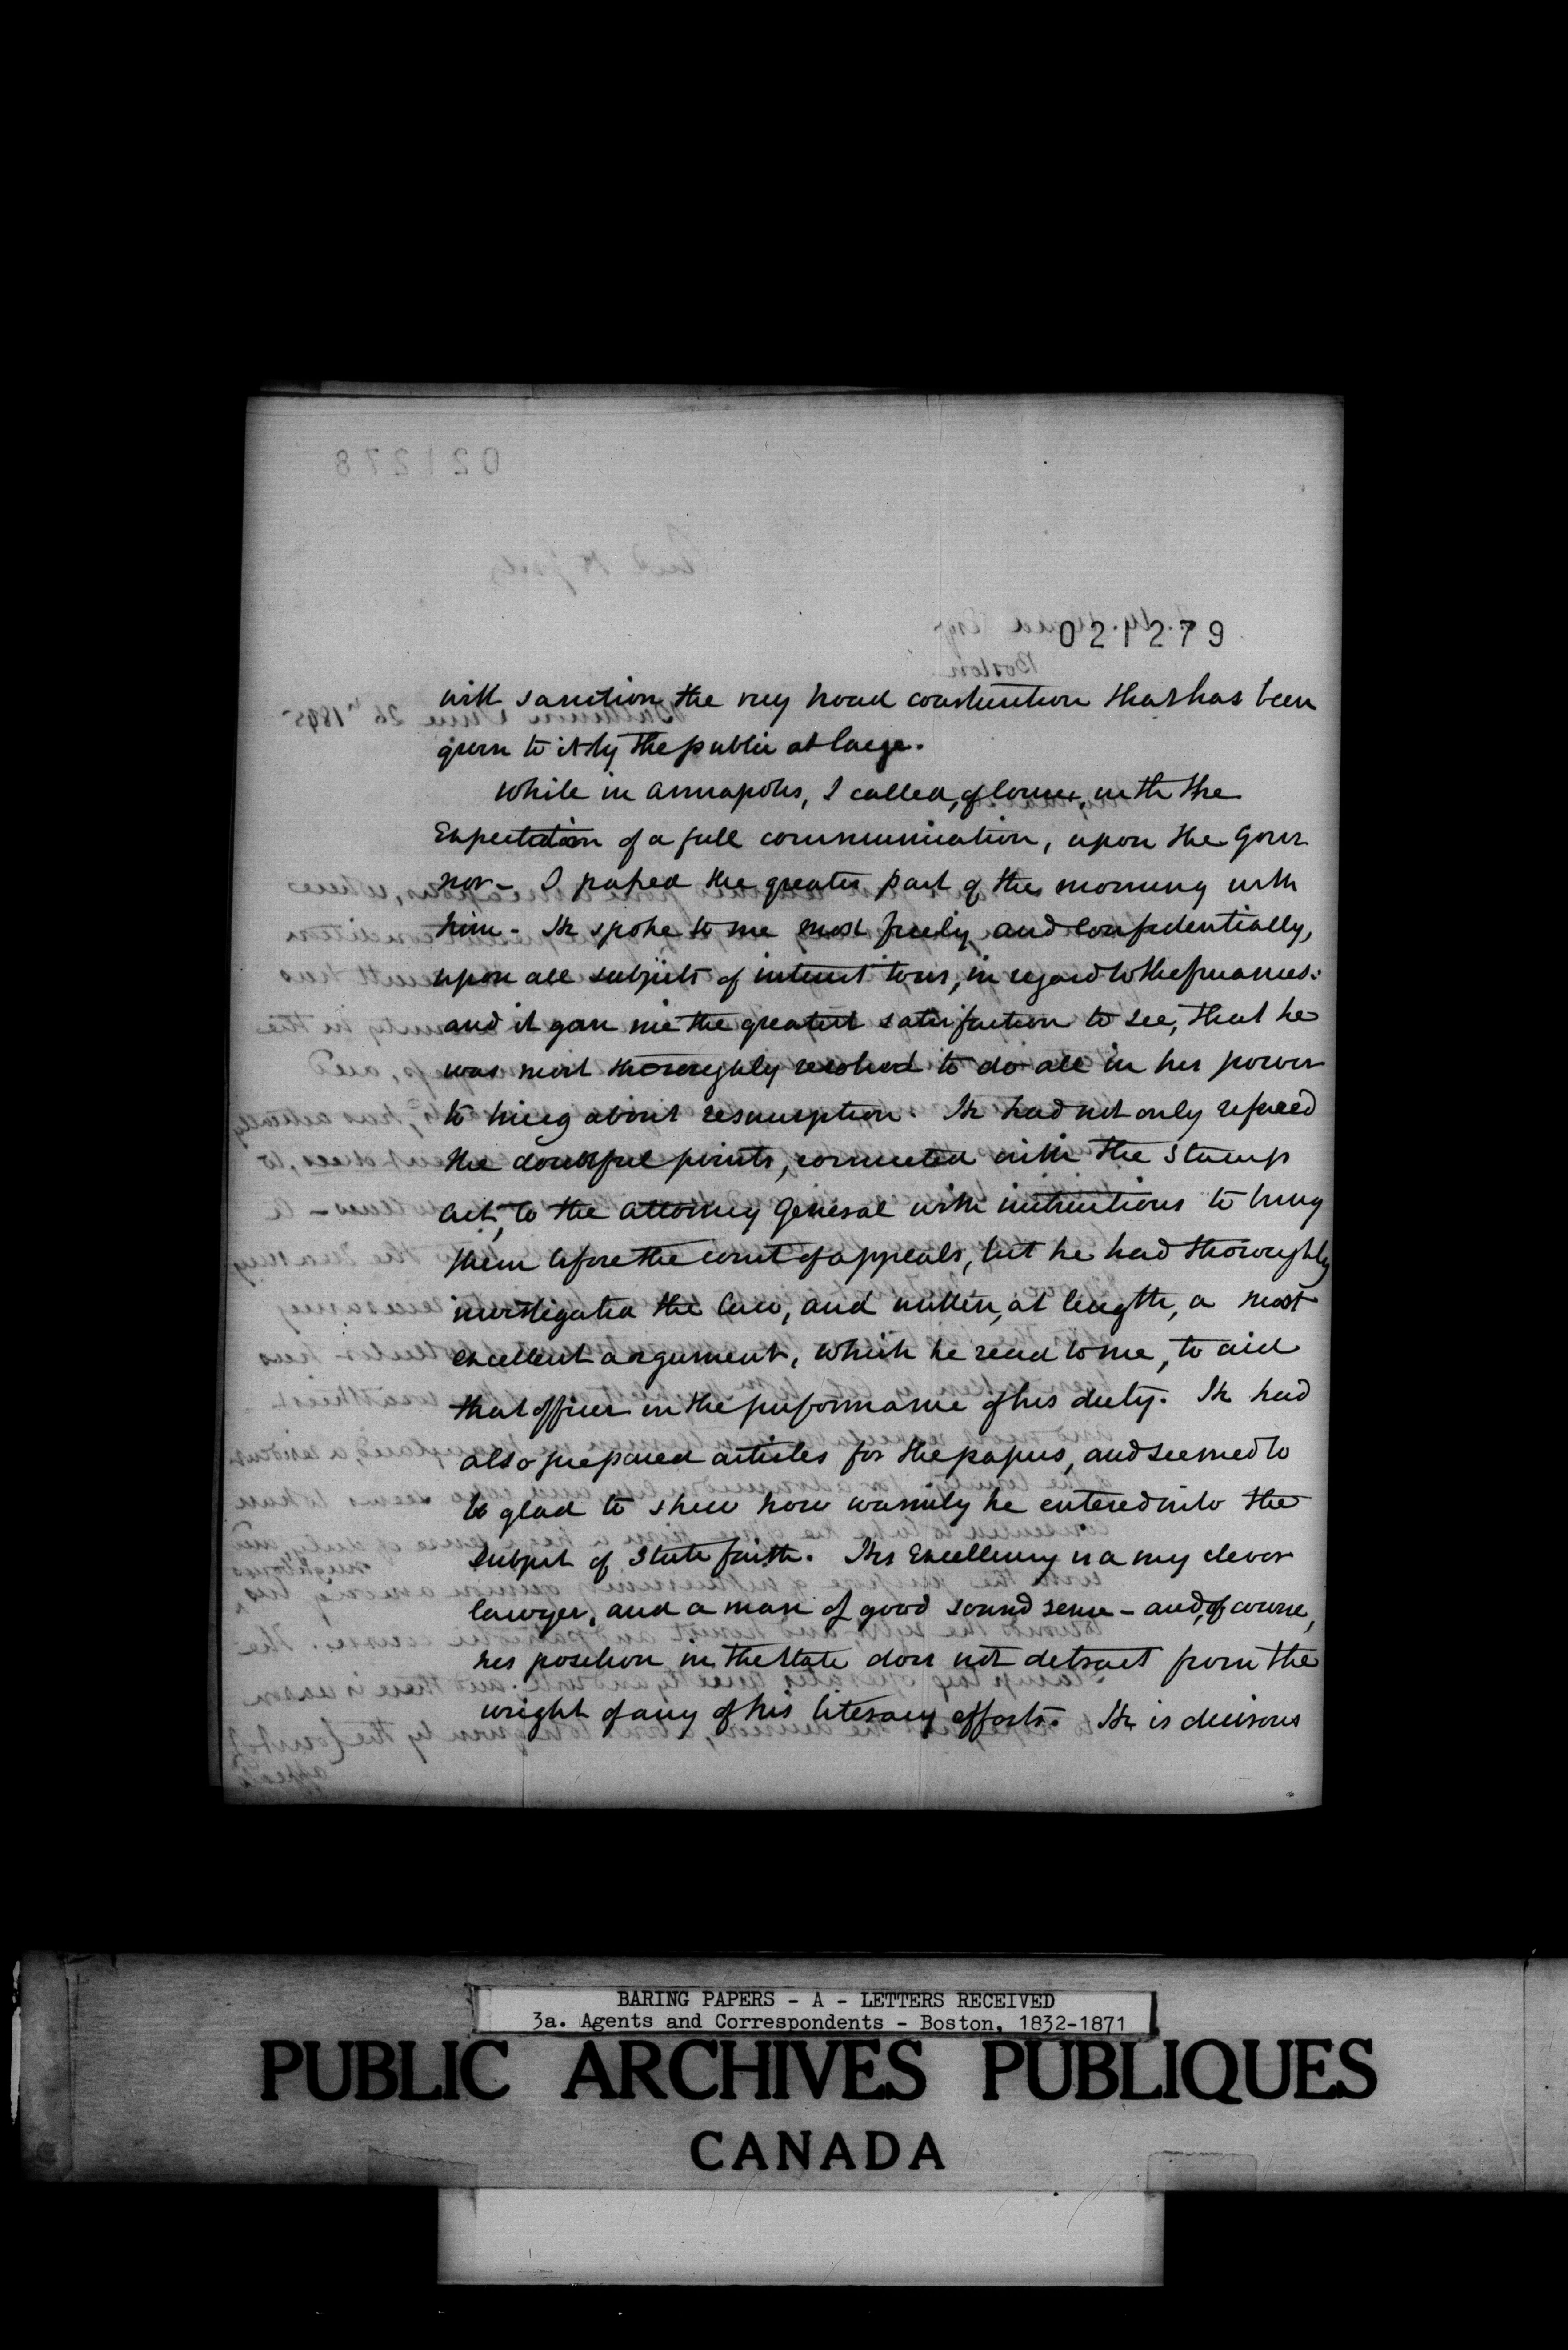 021279
will sanction the very broad construction that has been
given to it by the public at large.
While in Annapolis, I called, of course, with the
Expectation of a full communication, upon the Gover
nor - I passed the greater part of the morning with
him - He spoke to me most freely and confidentially,
upon all subjects of interest to us, in regard to the finances:
and it gave me the greatest satisfaction to see, that he
was most thoroughly resolved to do all in his power
to bring about resumption. He had not only refered
the doubtful points, connected with the Stamp
act, to the Attorney General with instructions to bring
them before the court of appeals, but he had thoroughly
investigated the law, and written, at length, a most
excellent argument, which he read to me, to aid
that officer in the performance of his duty. He had
also prepared articles for the papers, and seemed to
be glad to shew how warmly he entered into the
subject of State faith. His Excellency is a very clever
lawyer, and a man of good sound sense - and, of course,
his position in the State does not detract from the
weight of any of his literary efforts. He is desirous
BARING PAPERS - A - LETTERS RECEIVED
3a. Agents and Correspondents - Boston, 1832-1871
PUBLIC ARCHIVES PUBLIQUES
CANADA